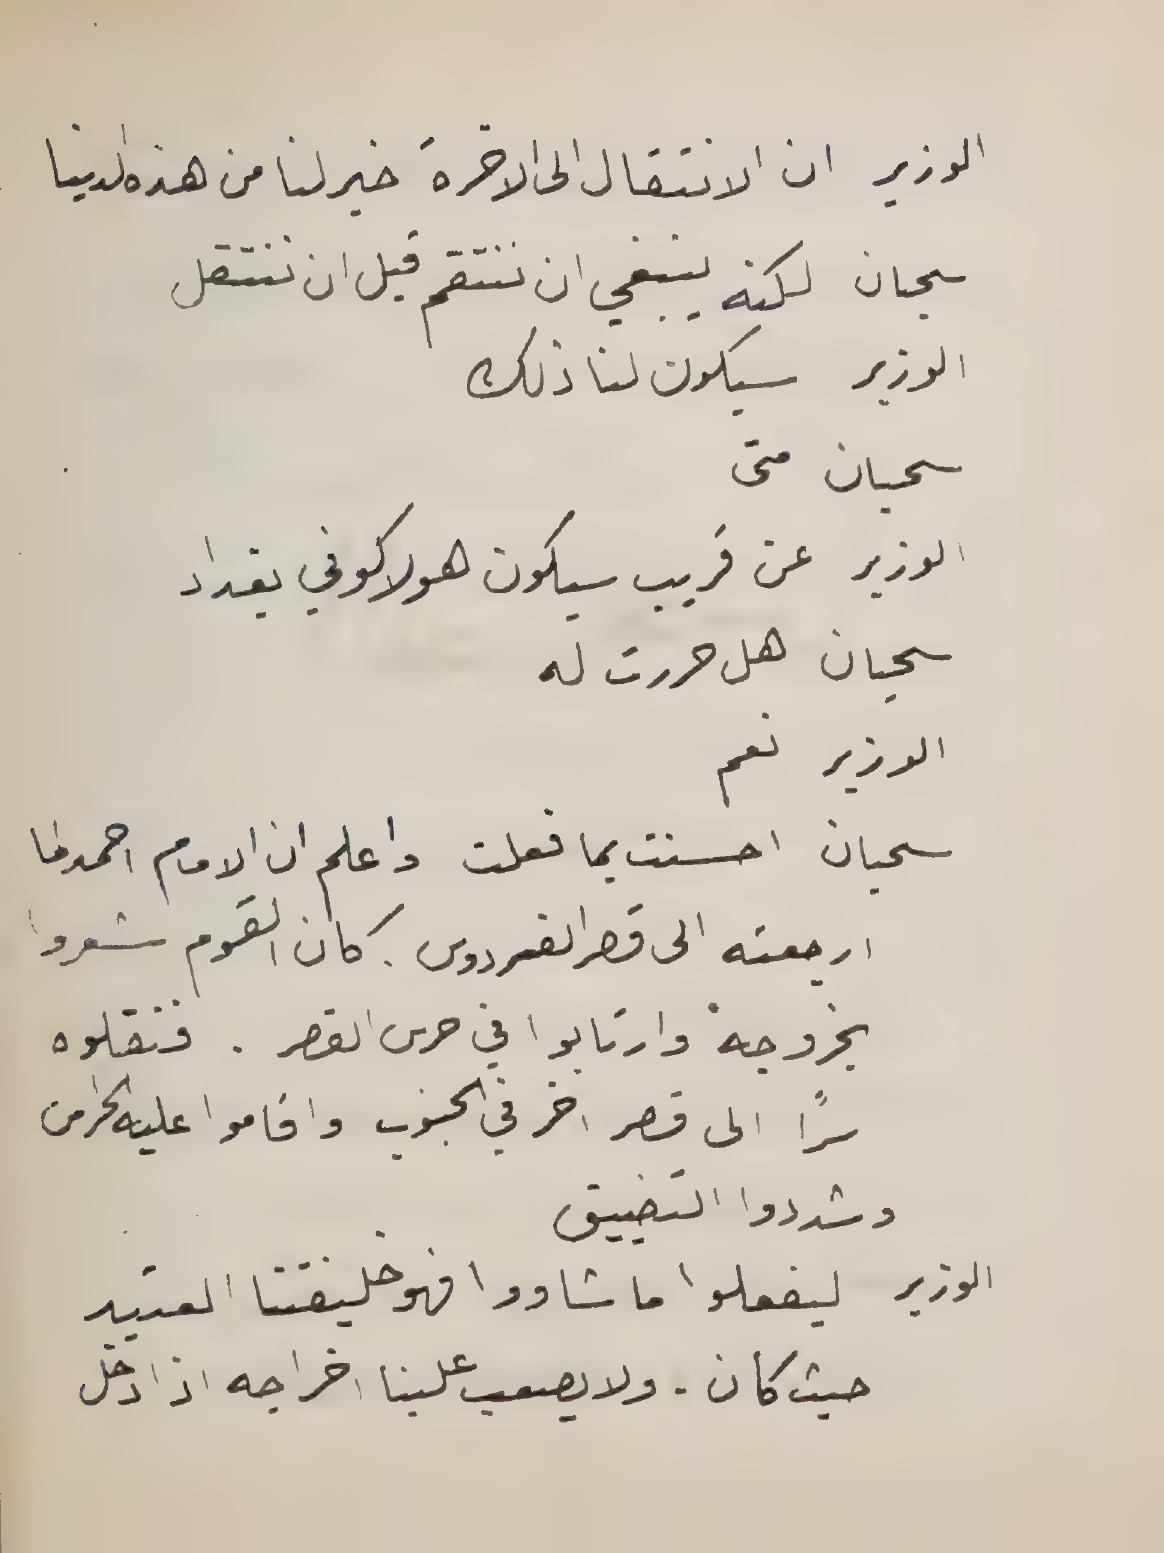 الوزير ان الانتقال الى الاخرة خير لنا من هذه الدنيا
سحبان لكنه ينبغي ان ننتقم قبل ان ننتقل
الوزير سيكون لنا ذلك
سحبان متى
الوزير عن قريب سيكون هولاكو في بغداد
سحبان هل حررت له
الوزير نعم
سحبان احسنت بما فعلت واعلم ان الامام احمد لما
ارجعته الى قصر الفردوس . كان القوم شعروا
بخروجه وارتابوا في حرس القصر . فنقلوه
سرًا الى قصر اخر في الجنوب واقاموا عليه الحرس
وشددوا التضييق
الوزير ليفعلوا ما شاووا فهو خليفتنا العتيد
حيث كان . ولا يصعب علينا اخراجه اذا دخل